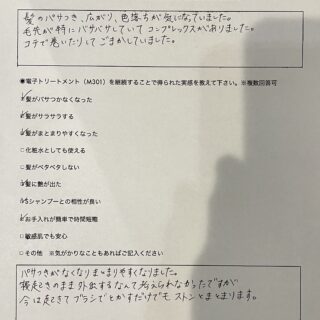 髪のパサつき、広がり、色落ちが気になっていました。
毛先が特にバサバサしていてコンプレックスがありました。
コテで巻いたりしてごまかしていました。
●電子トリートメント（M301）を継続することで得られた実感を教えて下さい。※複数回答可
髪がパサつかなくなった
髪がサラサラする
髪がまとまりやすくなった
□化粧水としても使える
□髪がベタベタしない
髪に艶が出た
Sシャンプーとの相性が良い
お手入れが簡単で時間短縮
□敏感肌でも安心
□その他 ※気がかりなこともあればご記入ください
パサつきがなくなりまとまりやすくなりました。
寝起きのまま外出するなんて考えられなかったですが
今は起きてブラシでとかすだけでもストンとまとまります。